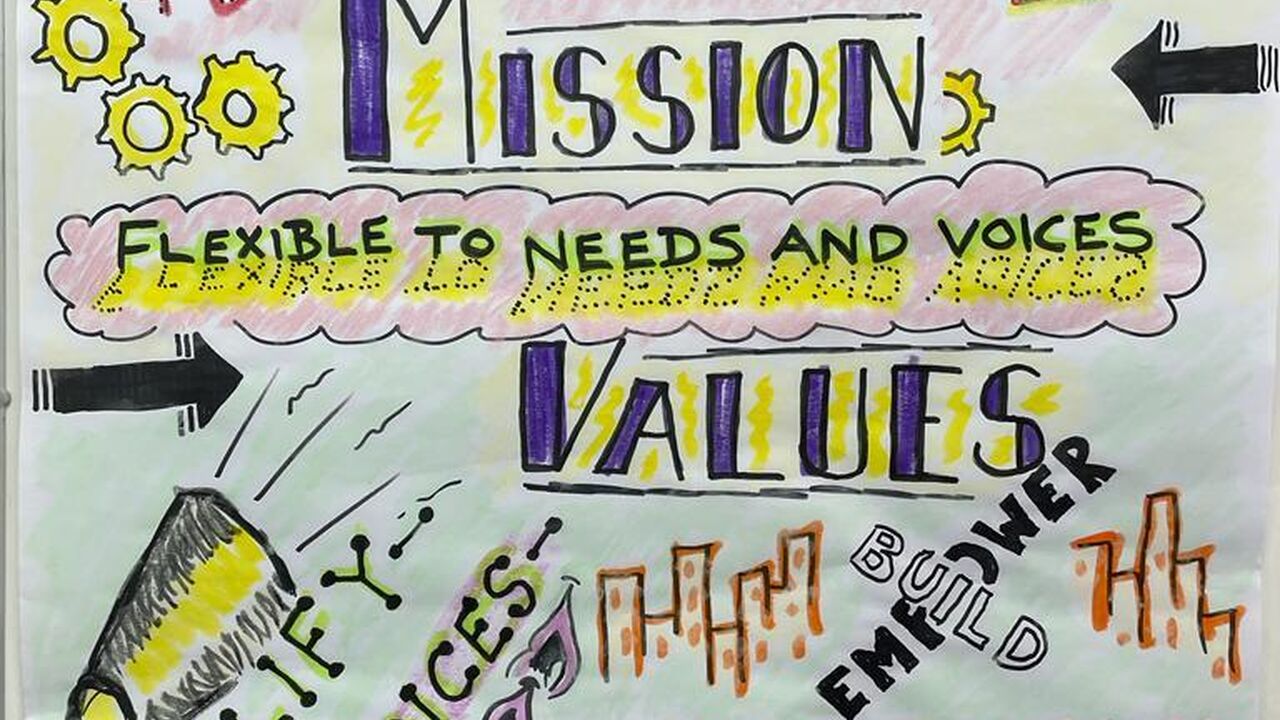 MISSION
FLEXIBLE TO NEEDS AND VOICES
VALUES
EMPOWER
BUILD
IFY
ICES